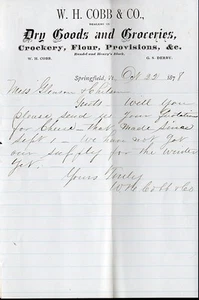 W. H. COBB & CO.,
DEALERS IN
Dry Goods and Groceries,
Crockery, Flour, Provisions, &c.
W. H. COBB.
G. S. DERBY.
Springfield, Oct 22 1878
Mess Gleason &
Gents - Will you
please send us your Quotation
for Cheese - that made since
Sept 1 - We have not got
our supply for the winter
Yet.
Yours Truly
W H Cobb & Co